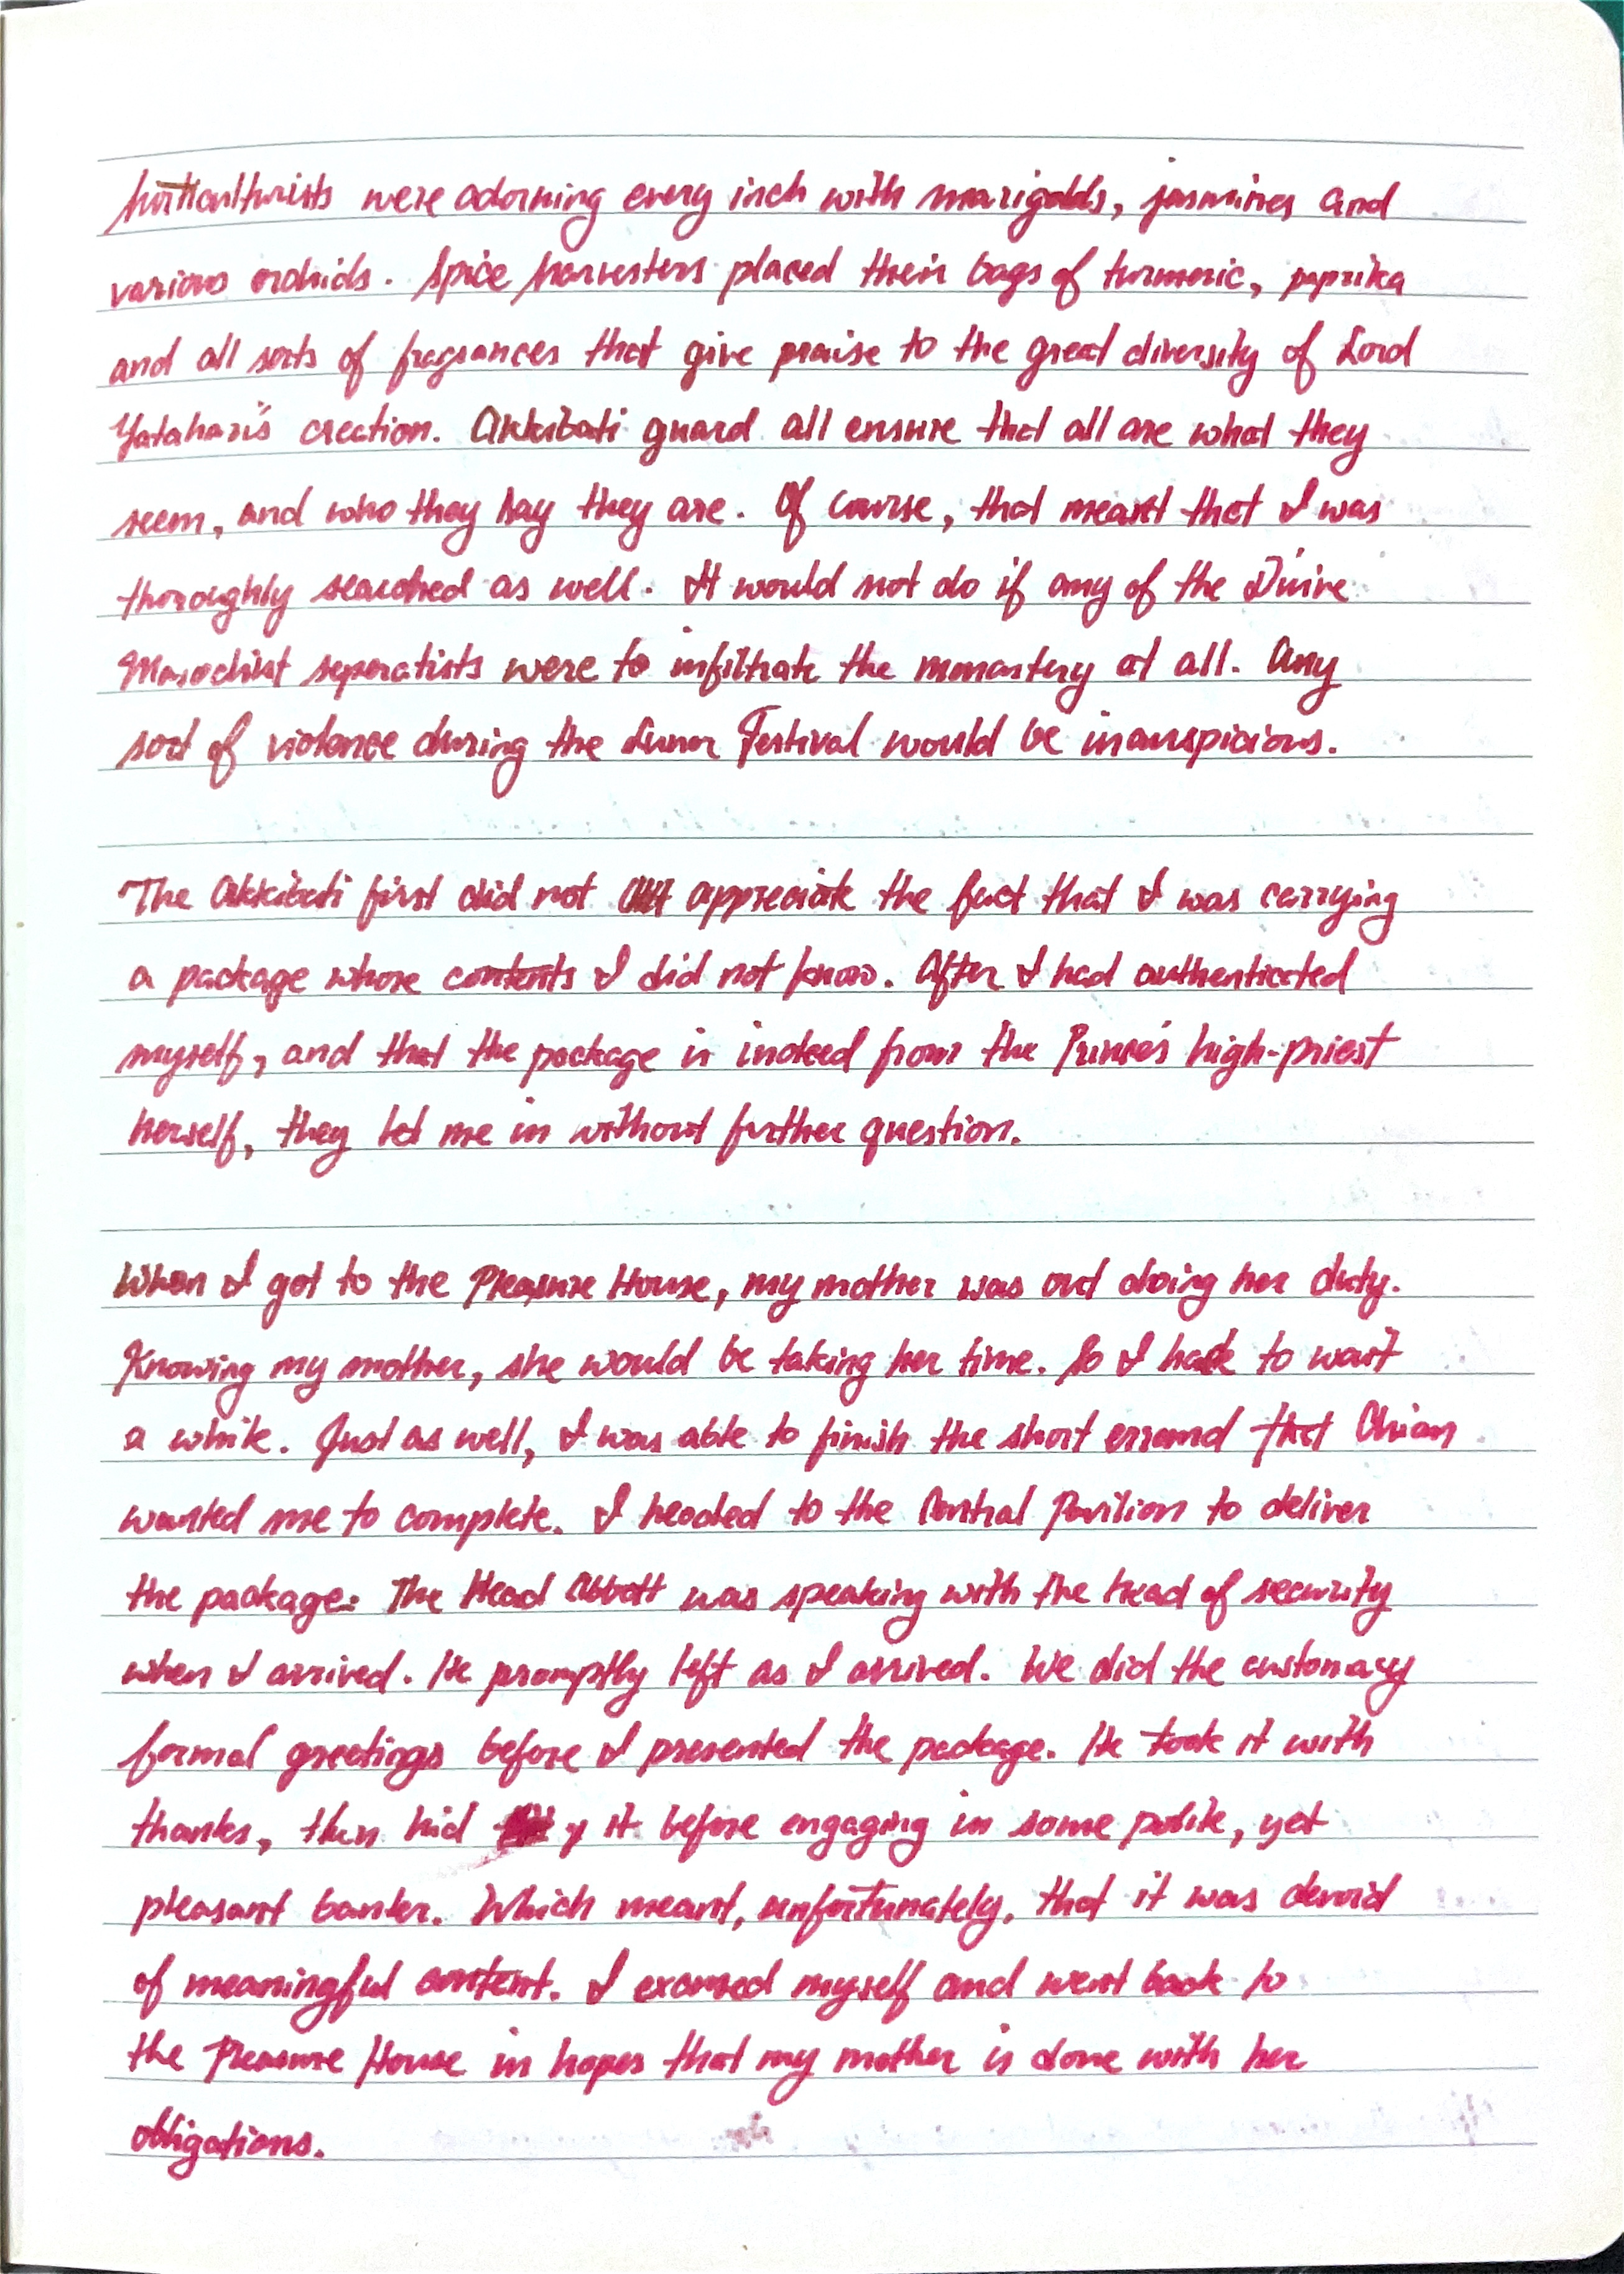 horticulturists were adorning every inch with marigolds, jasmines and
various orchids. Spice harvesters placed their bags of turmeric, paprika
and all sorts of fragrances that give praise to the great diversity of Lord
Yatahari's creation. Akkibati guard all ensure that all are what they
seem, and who they say they are. Of course, that meant that I was
thoroughly searched as well. It would not do if any of the Divine
Masochist seperatists were to infiltrate the monastery at all. Any
sort of violence during the Lunar Festival would be inauspicious.
The Akkibati first did not appreciate the fact that I was carrying
a package whose contents I did not know. After I had authenticated
myself, and that the package is indeed from the Prince's high-priest
herself, they let me in without further question.
When I got to the Pleasure House, my mother was out doing her duty.
Knowing my mother, she would be taking her time. So I had to wait
a while. Just as well, I was able to finish the short errand that Chian
wanted me to complete. I headed to the Central Pavilion to deliver
the package. The Head Abbott was speaking with the head of security
when I arrived. He promptly left as I arrived. We did the customary
formal greetings before I presented the package. He took it with
thanks, then hid it before engaging in some polite, yet
pleasant banter. Which meant, unfortunately, that it was devoid
of meaningful content. I excused myself and went back to
the Pleasure House in hopes that my mother is done with her
obligations.